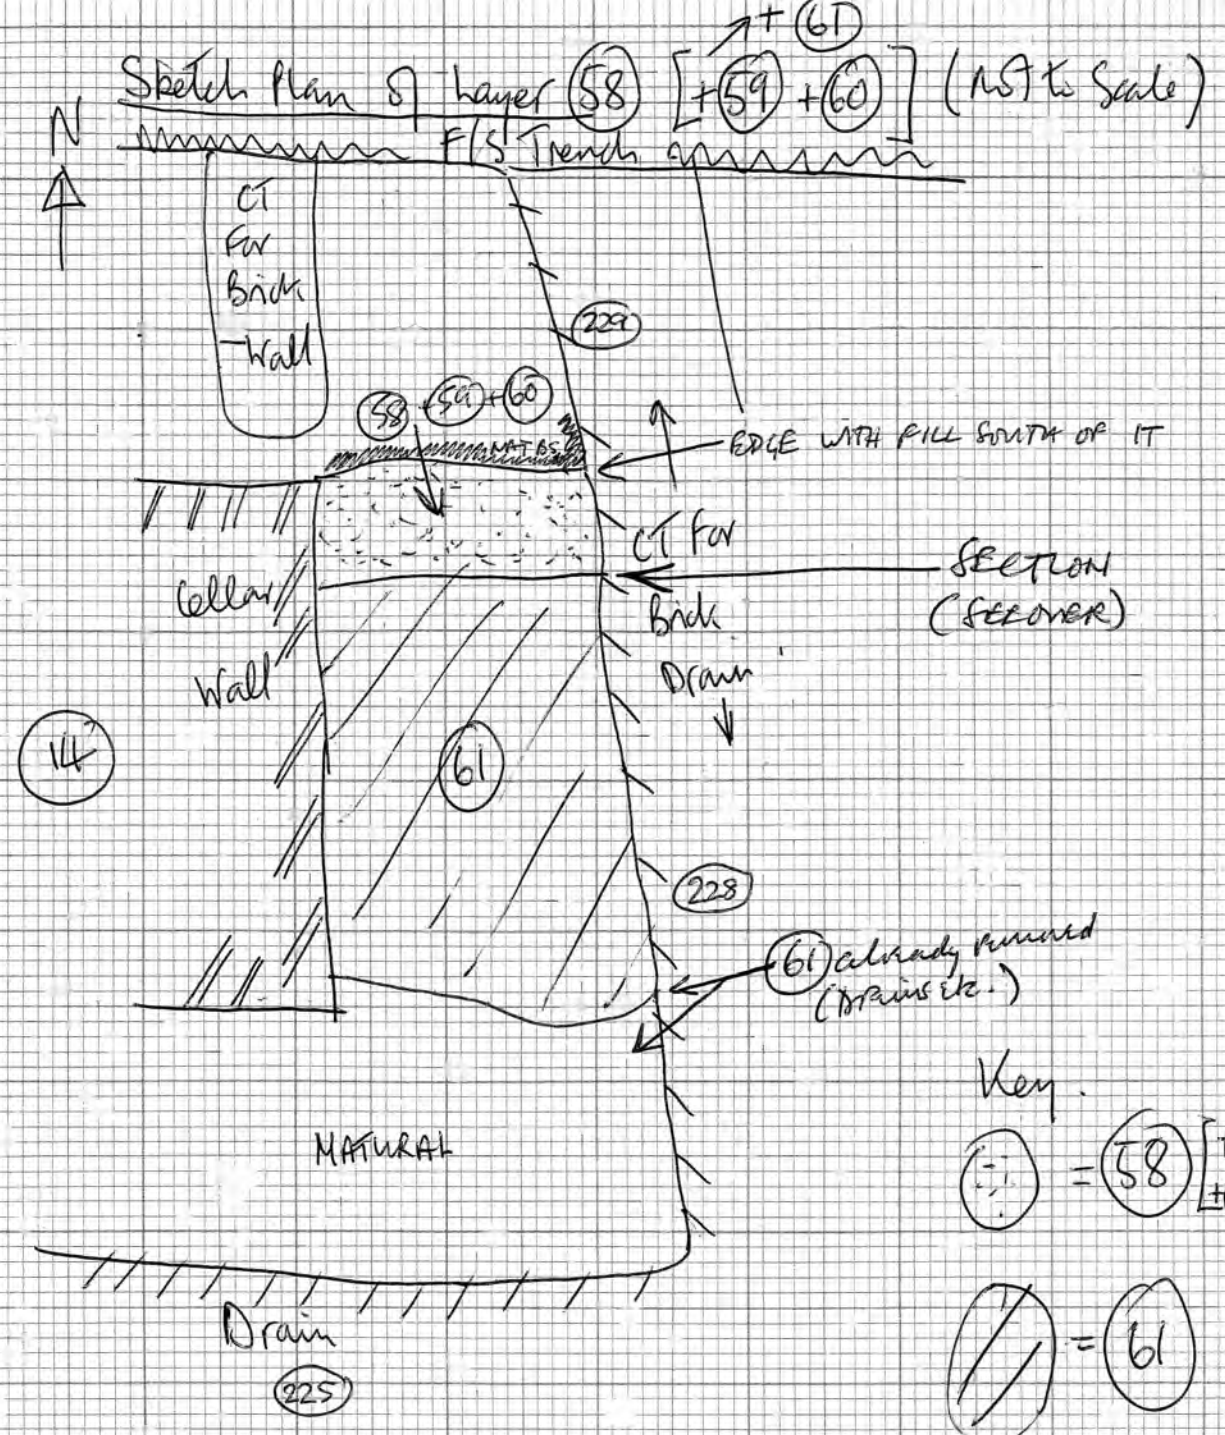 + (61)
Sketch Plan of Layer (58) [+(59) +(60)] (Not to Scale)
N
F/S Trench
CT
For
Brick
Wall
(229)
(58) +(59)+(60)
NAT BS
EDGE WITH FILL SOUTH OF IT
CT For
Brick
Drain
SECTION
(SEE OVER)
Cellar
Wall
(14)
(61)
(228)
(61) already removed
(Drains etc.)
Key.
= (58) [
NATURAL
= (61)
Drain
(225)